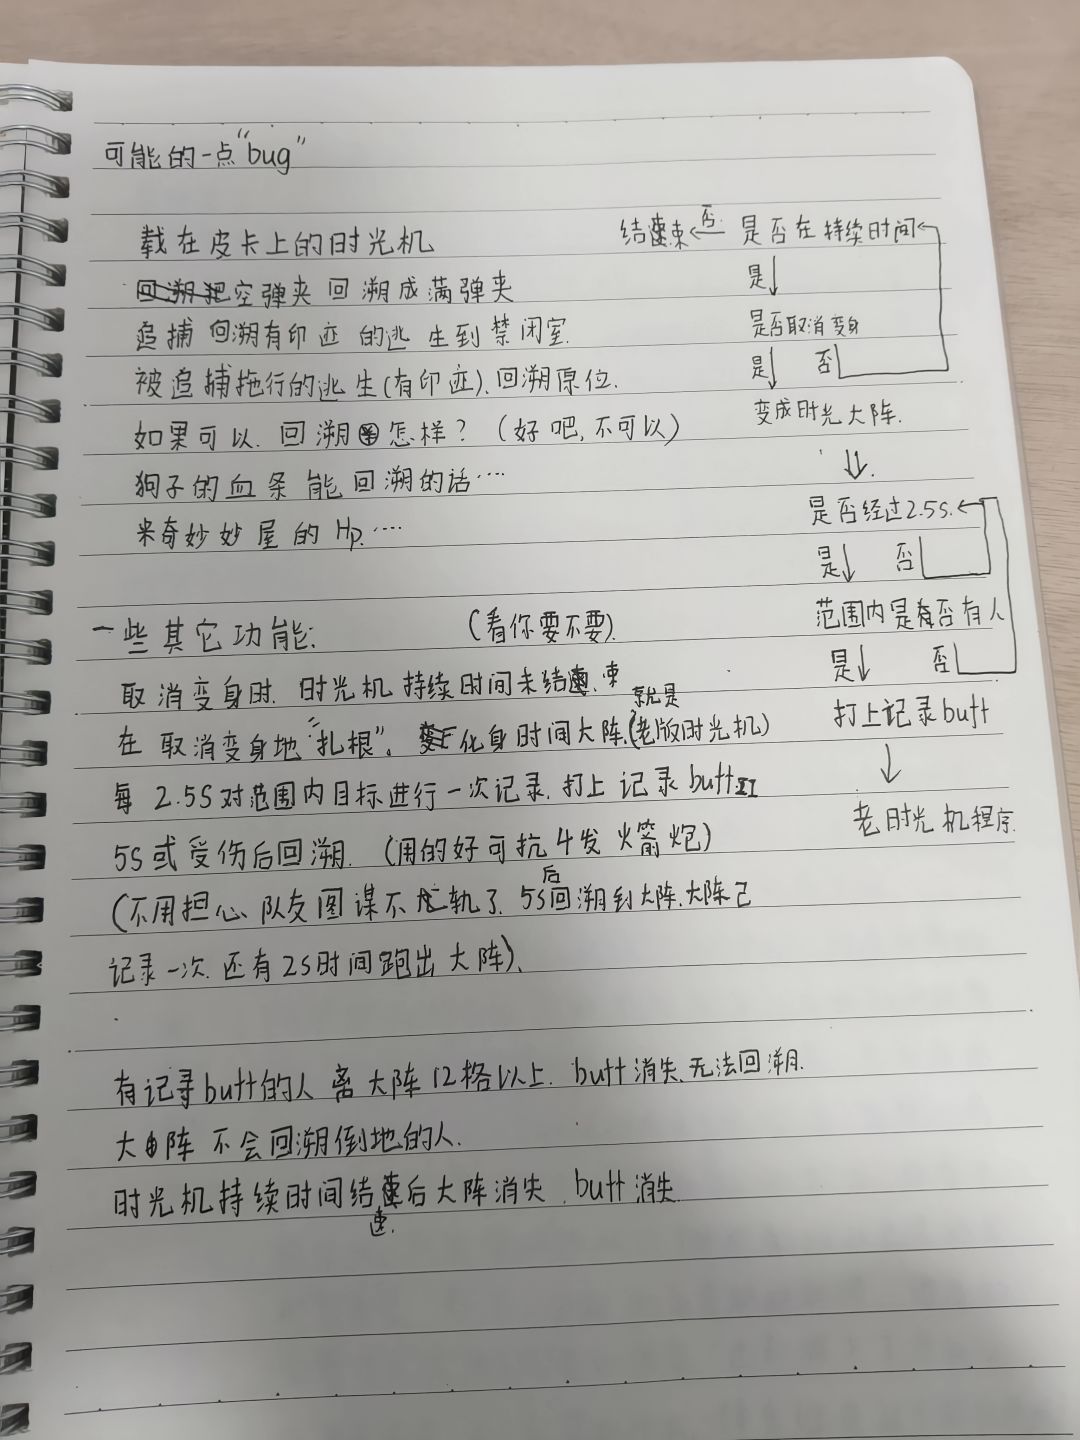 可能的一点“bug”
载在皮卡上的时光机
空弹夹 回溯成满弹夹
追捕 回溯有印迹 的逃生到禁闭室.
被追捕拖行的逃生(有印迹).回溯原位.
如果可以. 回溯 怎样? (好吧,不可以)
狗子的血条能回溯的话……
米奇妙妙屋的Hp.……
一些其它功能: (看你要不要).
取消变身时. 时光机持续时间未结束
在取消变身地“扎根”. 化身时间大阵.(就是老版时光机)
每 2.5S对范围内目标进行一次记录.打上记录buff
5S或受伤后回溯. (用的好可抗4发火箭炮)
(不用担心队友图谋不轨了. 5s后回溯到大阵.大阵已
记录一次.还有2S时间跑出大阵).
有记录buff的人离大阵12格以上. buff消失.无法回溯.
大阵不会回溯倒地的人.
时光机持续时间结速后大阵消失.buff消失.
结束 ← 否. 是否在持续时间
是↓
是否取消变身
是↓ 否
变成时光大阵.
⇓.
是否经过2.5S.
是↓ 否
范围内是否有人
是↓ 否
打上记录buff
↓
老时光机程序.